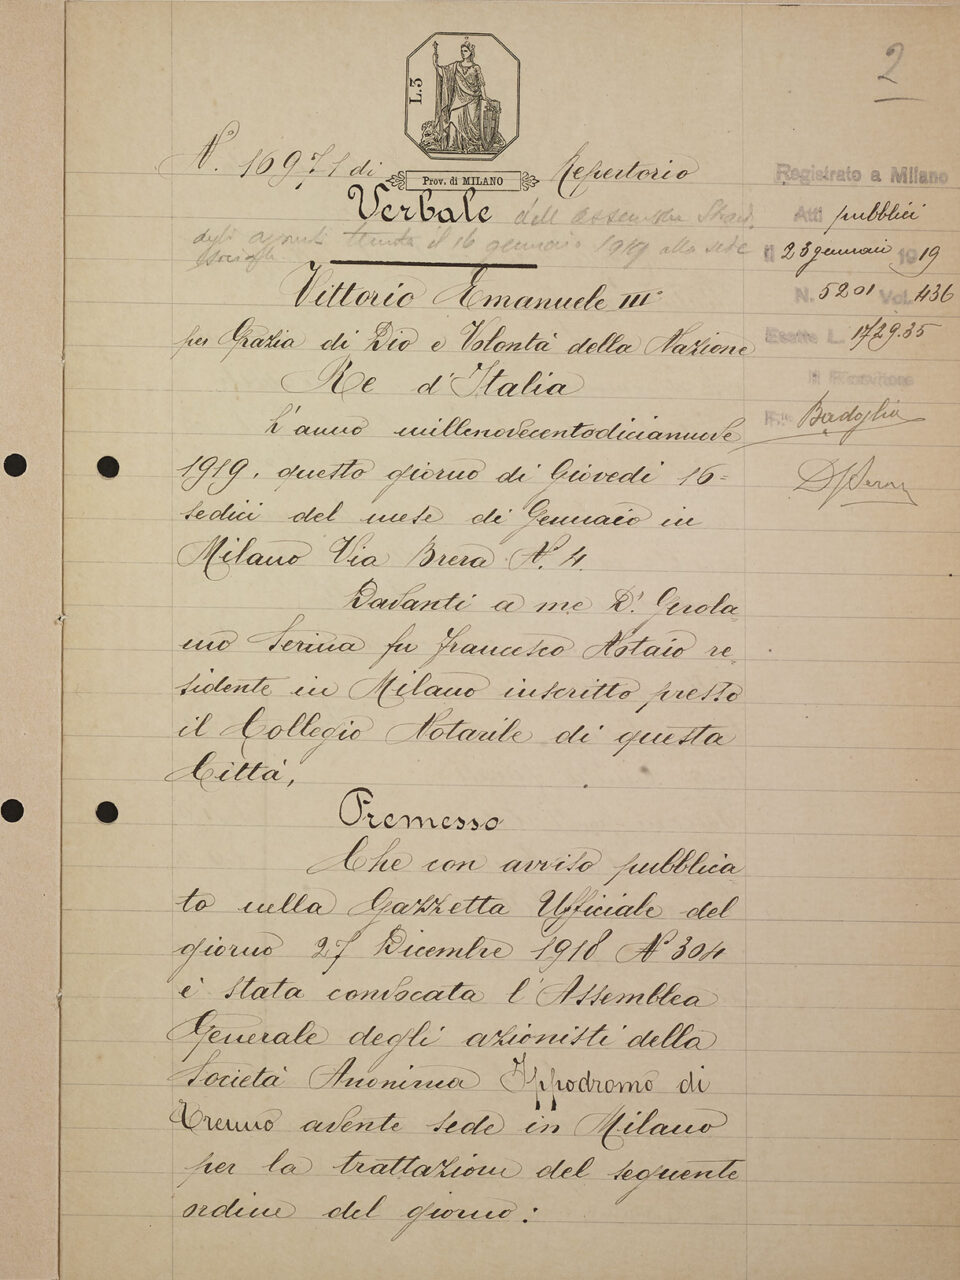 2
L.3
N.° 16971 di Repertorio
Prov. di MILANO
Verbale dell'assemblea Straord.
degli azionisti tenuta il 16 gennaio 1919 alla sede
sociale
Registrato a Milano
Atti pubblici
il 23 gennaio 1919
N. 5201 Vol. 436
Esatte L. 1729.35
Il Ricevitore
F.to Badoglio
Vittorio Emanuele III°
per Grazia di Dio e Volontà della Nazione
Re d'Italia
L'anno millenovecentodicianove
1919, questo giorno di Giovedì 16=
sedici del mese di Gennaio in
Milano Via Brera N. 4.
Davanti a me D.r Gerola
mo Serina fu Francesco Notaio re
sidente in Milano inscritto presso
il Collegio Notarile di questa
Città,
Premesso
Che con avviso pubblica
to nella Gazzetta Ufficiale del
giorno 27 Dicembre 1918 N° 304
è stata convocata l'Assemblea
Generale degli azionisti della
Società Anonima Ippodromo di
Trenno avente sede in Milano
per la trattazione del seguente
ordine del giorno: